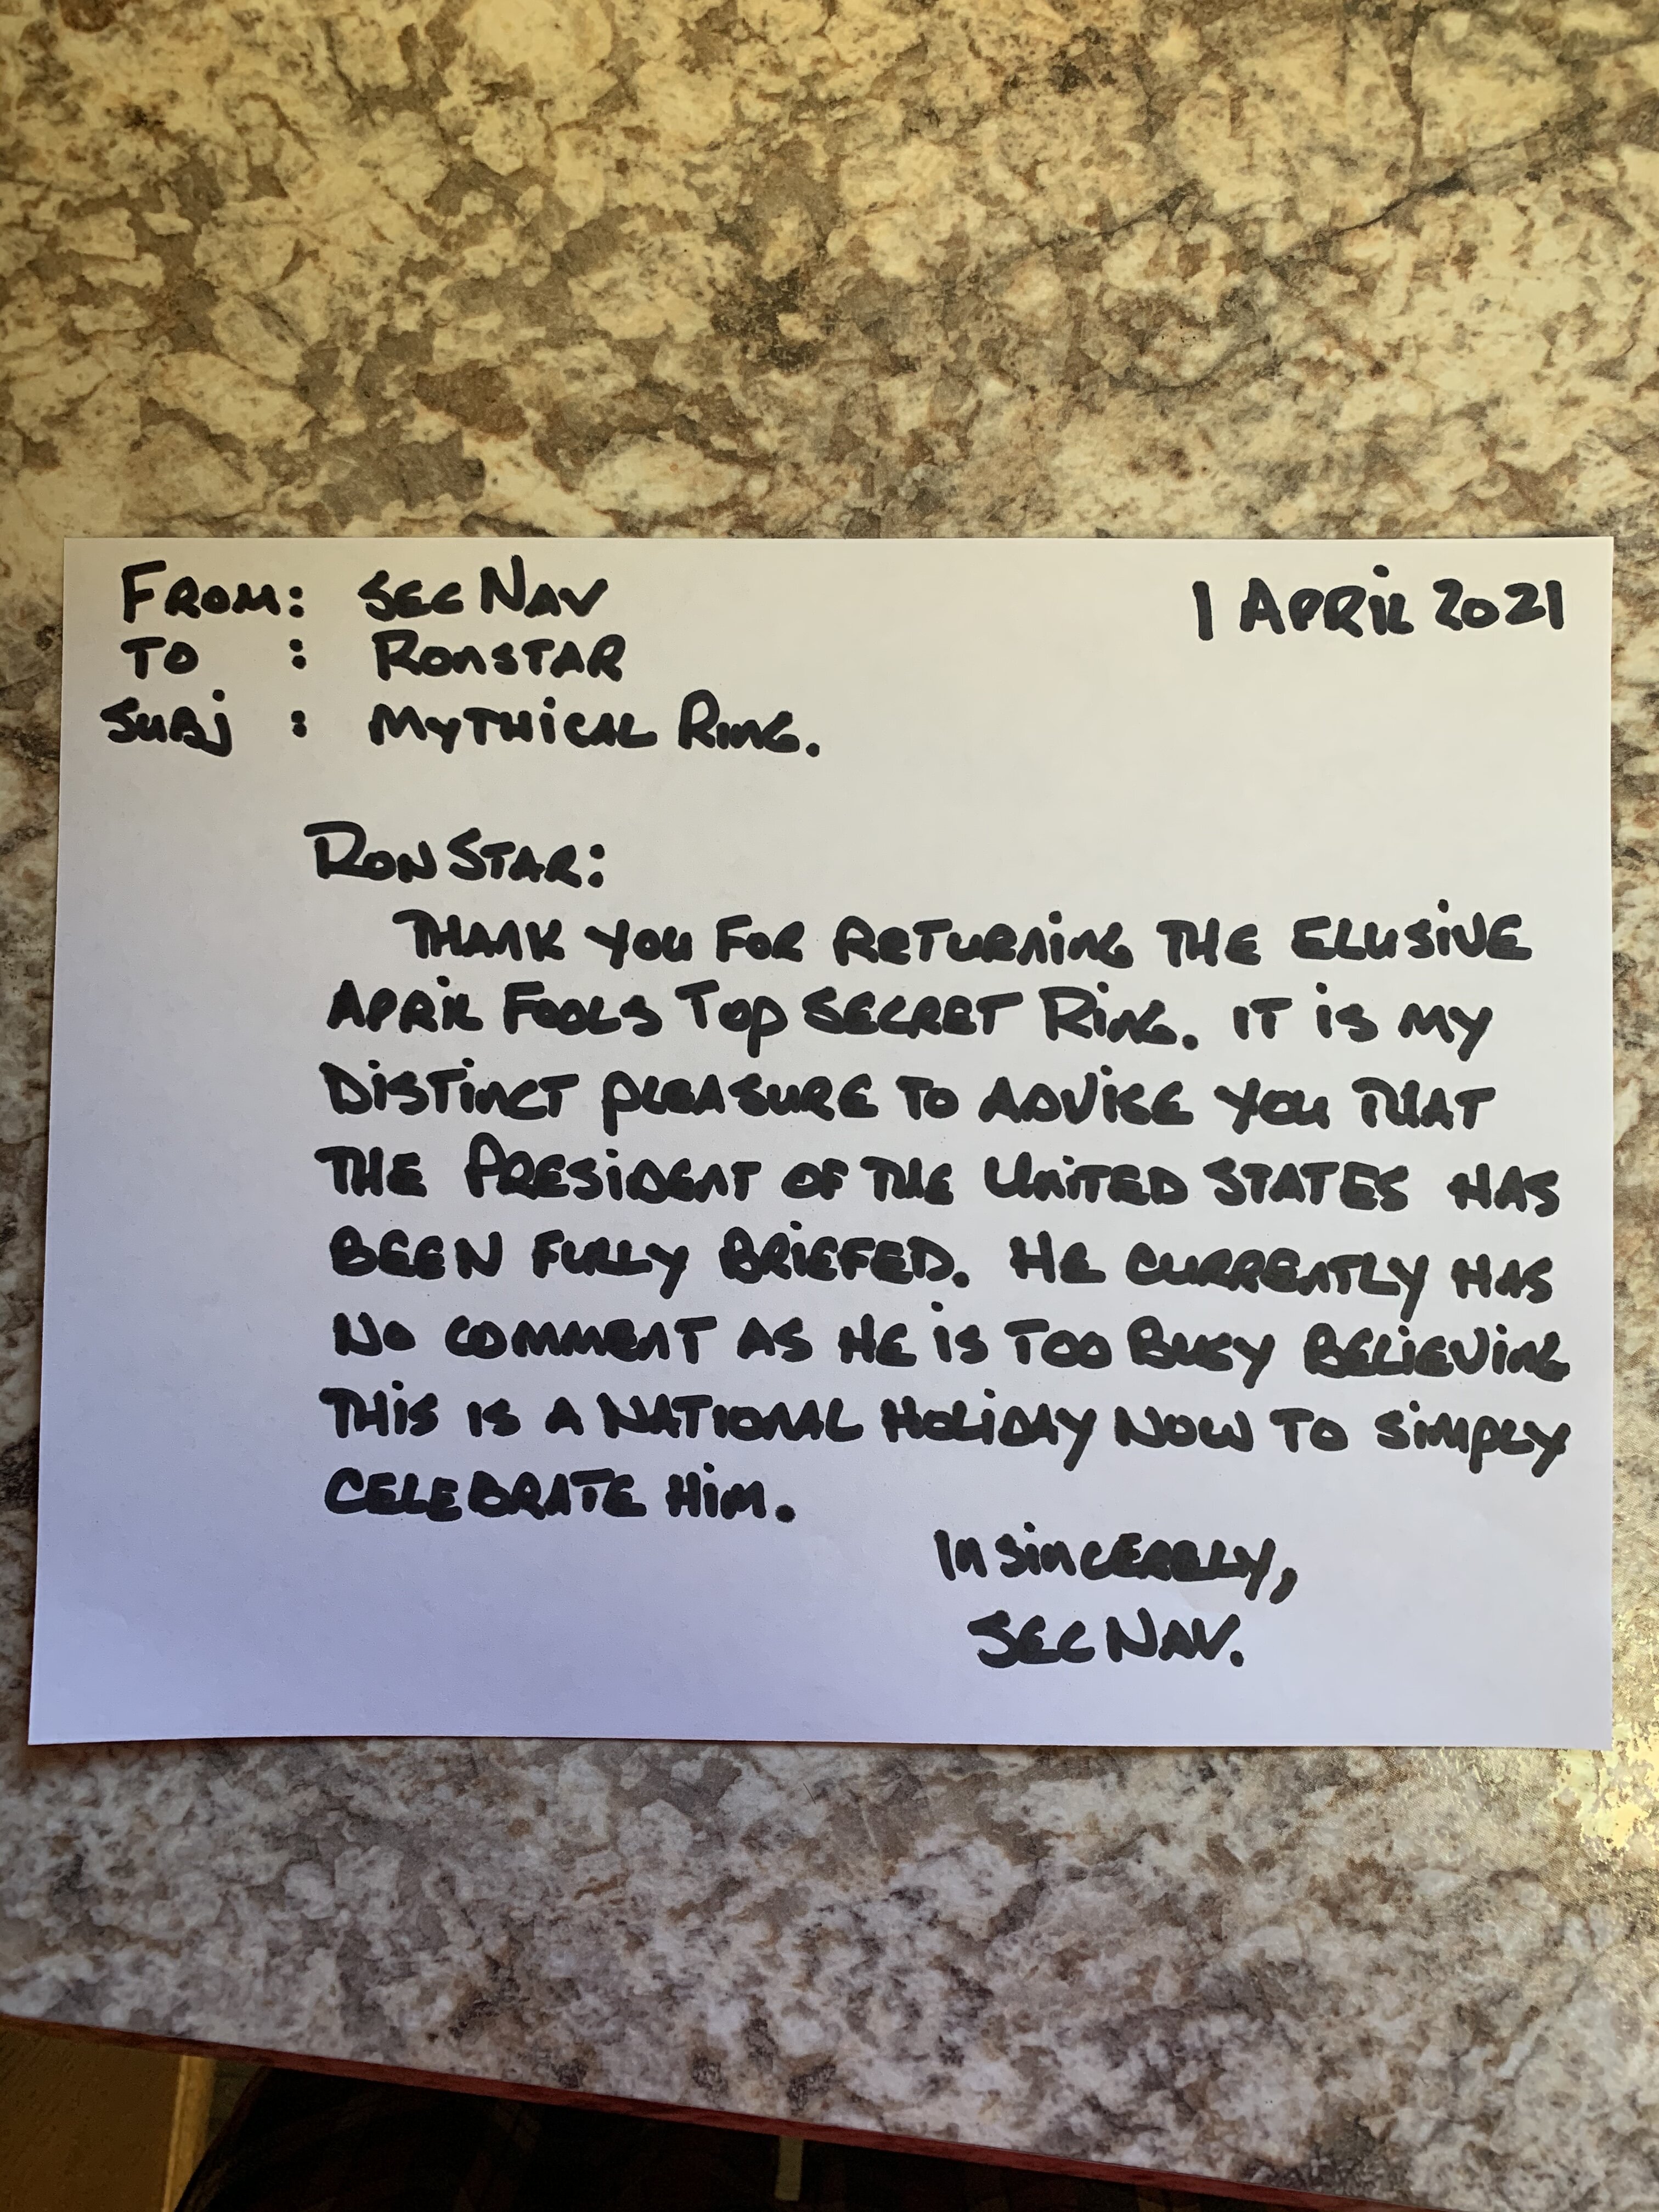 FROM: SECNAV 1 APRIL 2021
TO : RONSTAR
SUBJ : MYTHICAL RING.
RONSTAR:
THANK YOU FOR RETURNING THE ELUSIVE
APRIL FOOLS TOP SECRET RING. IT IS MY
DISTINCT PLEASURE TO ADVISE YOU THAT
THE PRESIDENT OF THE UNITED STATES HAS
BEEN FULLY BRIEFED. HE CURRENTLY HAS
NO COMMENT AS HE IS TOO BUSY BELIEVING
THIS IS A NATIONAL HOLIDAY NOW TO SIMPLY
CELEBRATE HIM.
INSINCERELY,
SECNAV.